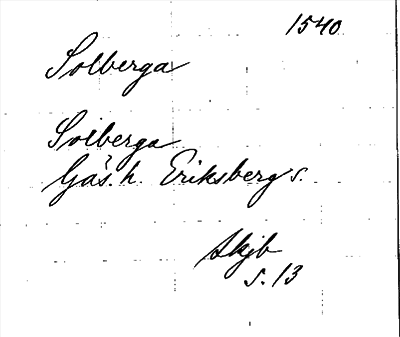 1540
Solberga
Solberga
Gäs. h. Eriksberg s.
Skjb
s. 13